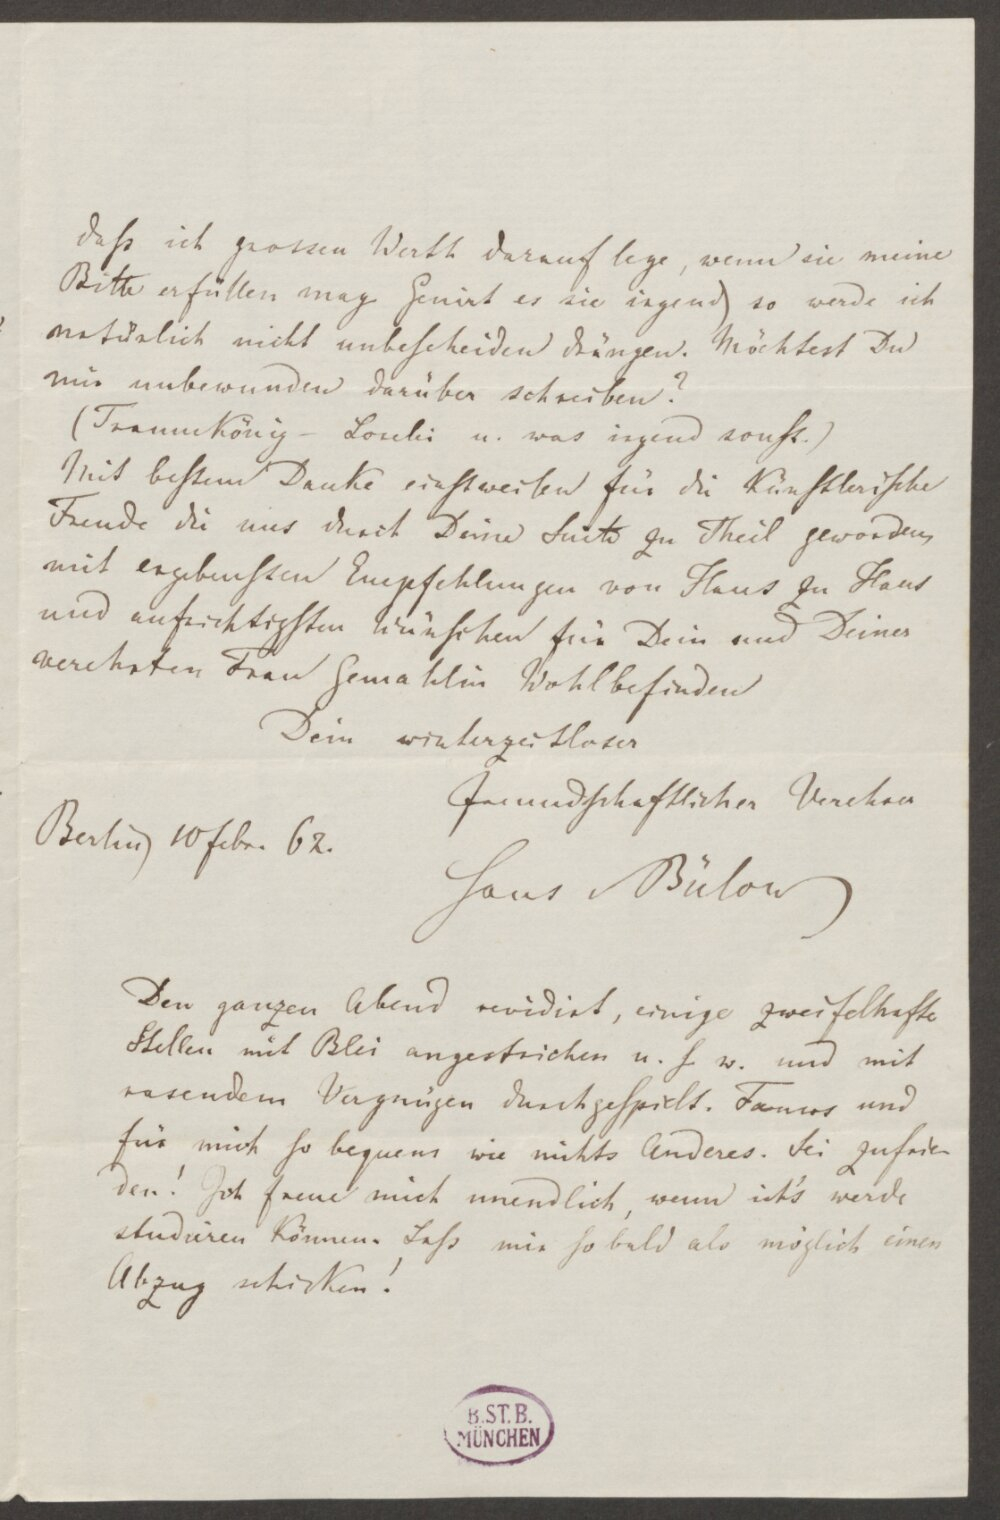 daß ich grossen Werth darauf lege, wenn sie meine
Bitte erfüllen mag. Genirt es sie irgend, so werde ich
natürlich nicht unbescheiden drängen. Möchtest Du
mir unbewunden darüber schreiben?
(Traumkönig – Loreley u. was irgend sonst.)
Mit bestem Danke einstweilen für die künstlerische
Freude die uns durch Deine Suite zu Theil geworden,
mit ergebensten Empfehlungen von Haus zu Haus
und aufrichtigsten Wünschen für Dein und Deiner
verehrten Frau Gemahlin Wohlbefinden
Dein winterzeitloser
freundschaftlicher Verehrer
Berlin, 10 febr. 62.
Hans v Bülow
Den ganzen Abend revidirt, einige zweifelhafte
Stellen mit Blei angestrichen u. s. w. und mit
rasendem Vergnügen durchgespielt. Famos und
für mich so bequem wie nichts Anderes. Sei zufrie-
den! Ich freue mich unendlich, wenn ich's werde
studieren können. Lass mir so bald als möglich einen
Abzug schicken!
B.ST.B.
MÜNCHEN